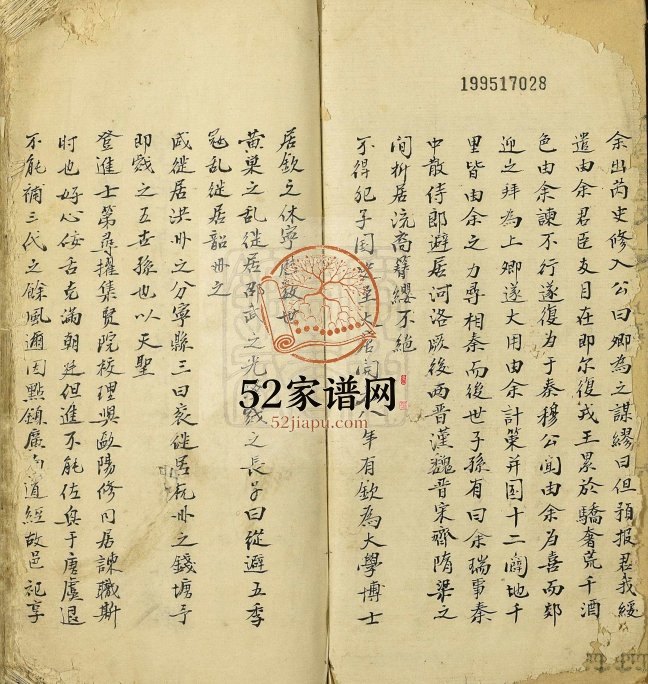 199517028
余出芮吏修入公曰卿為之謀繆曰但預报君我經
遣由余君臣友目在即尔復戎王累於驕奢荒于酒
色由余諫不行遂復为于秦穆公聞由余为喜而郊
迎之拜為上卿遂大用由余計策并国十二闢地千
里皆由余之力尋相秦而後世子孫有曰余瑞事秦
中散侍郎避居河洛厥後两晋漢魏晋宋齊隋梁之
間析居流裔簪纓不絶
不得犯子国 年有欽為大學博士
居歙之休寧 数世
黄巢之乱徙居邵武之光 戔之長子曰從避五季
乱徙居韶卅之
咸徙居洪卅之分寧縣三曰衮徙居杭卅之錢塘于
即戔之五世孫也以天聖
登進士第尋擢集賢院校理與歐陽修同居諫職斯
时也好心佞舌充滿朝廷但進不能佐奐于唐虞退
不能補三代之餘風邇因點鎮廣南道經故邑記享
52家谱网
52jiapu.com